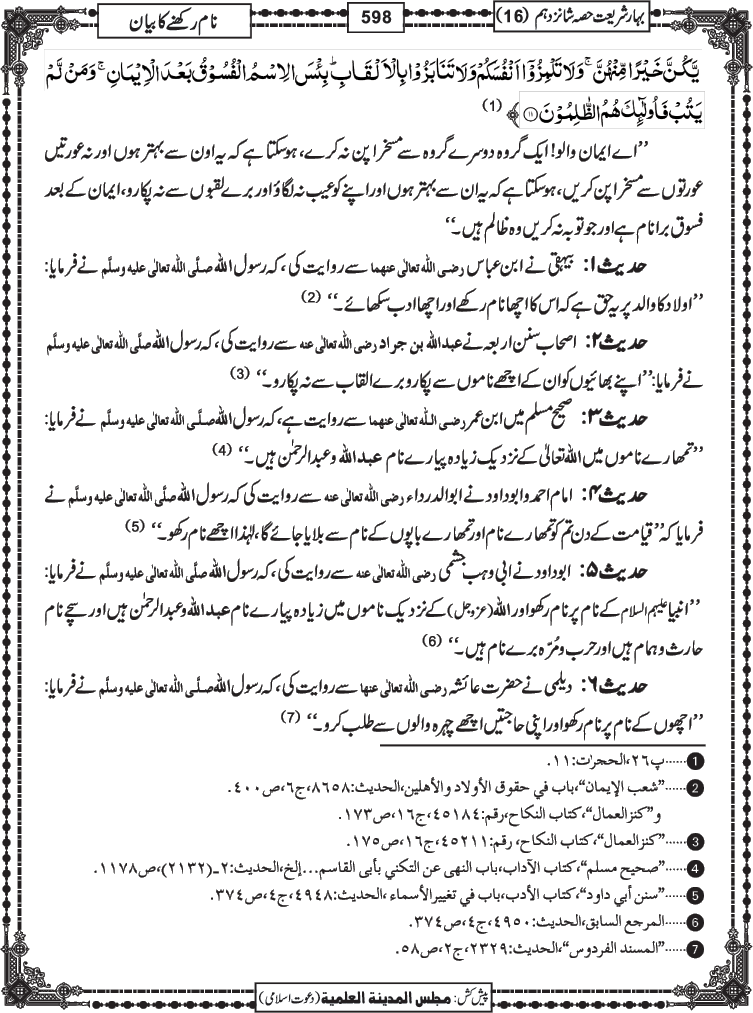 بہار شریعت حصہ شانزدہم (16)
598
نام رکھنے کا بیان
یَّكُنَّ خَیْرًا مِّنْهُنَّۚ-وَ لَا تَلْمِزُوْۤا اَنْفُسَكُمْ وَ لَا تَنَابَزُوْا بِالْاَلْقَابِؕ-بِئْسَ الِاسْمُ الْفُسُوْقُ بَعْدَ الْاِیْمَانِۚ-وَ مَنْ لَّمْ
یَتُبْ فَاُولٰٓىٕكَ هُمُ الظّٰلِمُوْنَ(۱۱)﴾ (1)
’’اے ایمان والو! ایک گروہ دوسرے گروہ سے مسخرا پن نہ کرے، ہوسکتا ہے کہ یہ اون سے بہتر ہوں اور نہ عورتیں
عورتوں سے مسخرا پن کریں، ہوسکتا ہے کہ یہ ان سے بہتر ہوں اور اپنے کو عیب نہ لگاؤ اور برے لقبوں سے نہ پکارو، ایمان کے بعد
فسوق برا نام ہے اور جو توبہ نہ کریں وہ ظالم ہیں۔‘‘
حدیث ۱: بیہقی نے ابن عباس رضی اللہ تعالٰی عنھما سے روایت کی، کہ رسول اللہ صلَّی اللہ تعالٰی علیہ وسلَّم نے فرمایا:
’’اولاد کا والد پر یہ حق ہے کہ اس کا اچھا نام رکھے اور اچھا ادب سکھائے۔‘‘ (2)
حدیث ۲: اصحاب سنن اربعہ نے عبداللہ بن جراد رضی اللہ تعالٰی عنہ سے روایت کی، کہ رسول اللہ صلَّی اللہ تعالٰی علیہ وسلَّم
نے فرمایا: ’’اپنے بھائیوں کو ان کے اچھے ناموں سے پکارو برے القاب سے نہ پکارو۔‘‘ (3)
حدیث ۳: صحیح مسلم میں ابن عمر رضی اللہ تعالٰی عنھما سے روایت ہے، کہ رسول اللہ صلَّی اللہ تعالٰی علیہ وسلَّم نے فرمایا:
’’تمھارے ناموں میں اللہ تعالیٰ کے نزدیک زیادہ پیارے نام عبداللہ و عبدالرحمٰن ہیں۔‘‘ (4)
حدیث ۴: امام احمد و ابوداود نے ابوالدرداء رضی اللہ تعالٰی عنہ سے روایت کی کہ رسول اللہ صلَّی اللہ تعالٰی علیہ وسلَّم نے
فرمایا کہ ’’قیامت کے دن تم کو تمھارے نام اور تمھارے باپوں کے نام سے بلایا جائے گا، لہٰذا اچھے نام رکھو۔‘‘ (5)
حدیث ۵: ابوداود نے ابی وہب جشمی رضی اللہ تعالٰی عنہ سے روایت کی، کہ رسول اللہ صلَّی اللہ تعالٰی علیہ وسلَّم نے فرمایا:
’’انبیا علیہم السلام کے نام پر نام رکھو اور اللہ (عزوجل) کے نزدیک ناموں میں زیادہ پیارے نام عبداللہ و عبدالرحمٰن ہیں اور سچے نام
حارث و ہمام ہیں اور حرب و مُرّہ برے نام ہیں۔‘‘ (6)
حدیث ۶: دیلمی نے حضرت عائشہ رضی اللہ تعالٰی عنھا سے روایت کی، کہ رسول اللہ صلَّی اللہ تعالٰی علیہ وسلَّم نے فرمایا:
’’اچھوں کے نام پر نام رکھو اور اپنی حاجتیں اچھے چہرہ والوں سے طلب کرو۔‘‘ (7)
1 ......پ۲۶، الحجرٰت: ۱۱.
2 ......”شعب الإیمان“، باب في حقوق الأولاد والأھلین، الحدیث: ۸۶۵۸، ج۶، ص۴۰۰.
و”کنزالعمال“، کتاب النکاح، رقم: ۴۵۱۸۴، ج۱۶، ص۱۷۳.
3 ......”کنزالعمال“، کتاب النکاح، رقم: ۴۵۲۱۱، ج۱۶، ص۱۷۵.
4 ......”صحیح مسلم“، کتاب الآداب، باب النھی عن التکني بأبی القاسم...إلخ، الحدیث: ۲-(۲۱۳۲)، ص۱۱۷۸.
5 ......”سنن أبي داود“، کتاب الأدب، باب في تغییر الأسماء، الحدیث: ۴۹۴۸، ج۴، ص۳۷۴.
6 ......المرجع السابق، الحدیث: ۴۹۵۰، ج۴، ص۳۷۴.
7 ......”المسند الفردوس“، الحدیث: ۲۳۲۹، ج۲، ص۵۸.
پیش کش: مجلس المدینة العلمیة (دعوت اسلامی)